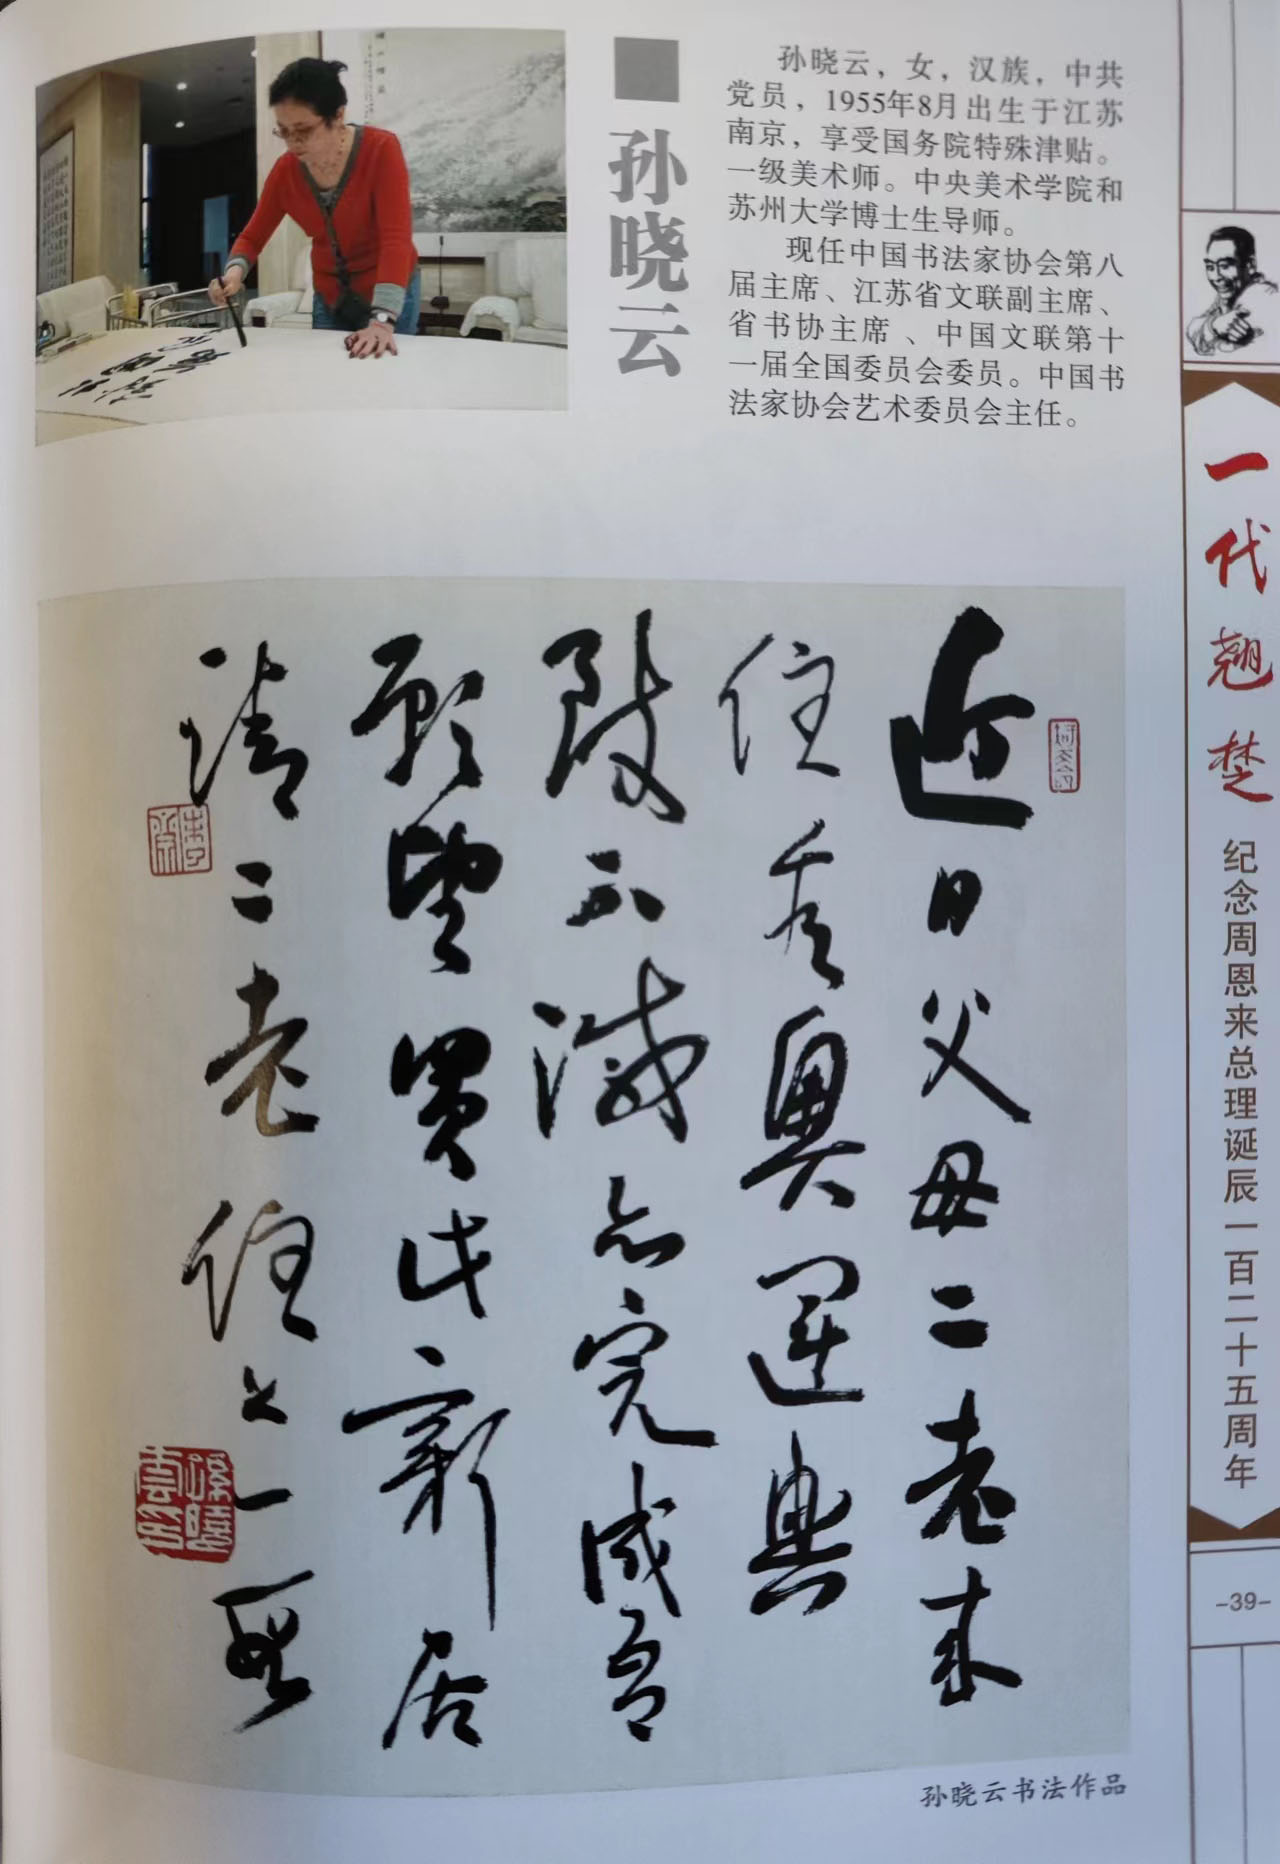 孙晓云
孙晓云，女，汉族，中共
党员，1955年8月出生于江苏
南京，享受国务院特殊津贴。
一级美术师。中央美术学院和
苏州大学博士生导师。
现任中国书法家协会第八
届主席、江苏省文联副主席、
省书协主席、中国文联第十
一届全国委员会委员。中国书
法家协会艺术委员会主任。
近日父母二老来
住看奥運興
致不減亦完成吾
願望買此新居
請二老住之一
孙晓云书法作品
一代翘楚
纪念周恩来总理诞辰一百二十五周年
-39-